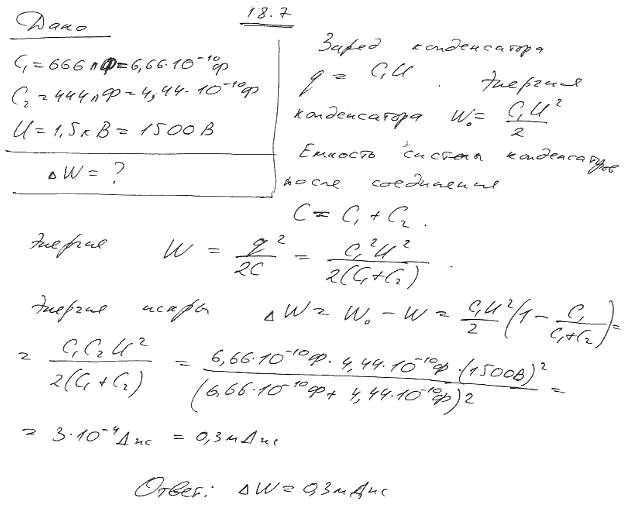 18.7
Дано
C₁ = 666 пФ = 6,66·10⁻¹⁰ф
C₂ = 444 пФ = 4,44·10⁻¹⁰ф
U = 1,5 кВ = 1500 В
ΔW = ?
Заряд конденсатора
q = C₁U . Энергия
конденсатора W₀ = C₁U²/2
Емкость системы конденсаторов
после соединения
C = C₁ + C₂ .
Энергия W = q²/2C = C₁²U²/2(C₁+C₂) .
Энергия искры ΔW = W₀ − W = C₁U²/2 (1 − C₁/(C₁+C₂)) =
= C₁C₂U²/2(C₁+C₂) = 6,66·10⁻¹⁰ф · 4,44·10⁻¹⁰ф · (1500В)²/(6,66·10⁻¹⁰ф + 4,44·10⁻¹⁰ф)2 =
= 3·10⁻⁴Дж = 0,3мДж
Ответ: ΔW = 0,3мДж